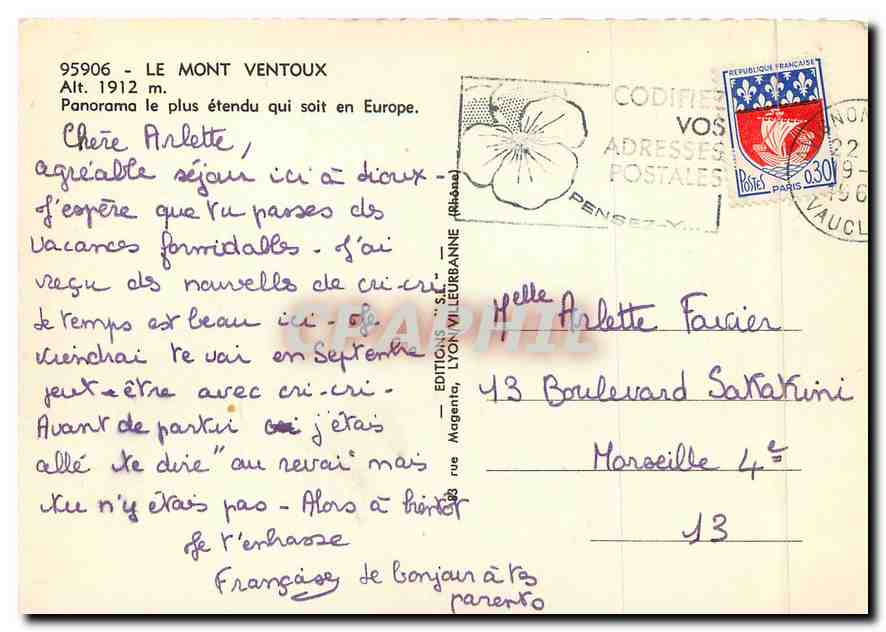 95906 - LE MONT VENTOUX
Alt. 1912 m.
Panorama le plus étendu qui soit en Europe.
Chère Arlette,
agréable séjour ici à
J'espère que tu passes des
vacances formidables - J'ai
reçu des nouvelles de cri-cri
Le temps est beau ici - Je
viendrai te voir en Septembre
peut-être avec cri-cri -
Avant de partir j'étais
allé te dire "au revoir" mais
tu n'y étais pas - Alors à bientôt
Je t'embrasse
Françoise
le bonjour à tes
parents
— EDITIONS "S.L." —
83 rue Magenta, LYON/VILLEURBANNE (Rhône)
CODIFIEZ
VOS
ADRESSES
POSTALES
PENSEZ-Y...
REPUBLIQUE FRANÇAISE
POSTES
PARIS
0,30
22
196
VAUCL
Melle Arlette Favier
13 Boulevard Sakakini
Marseille 4e
13
CPAPHIL